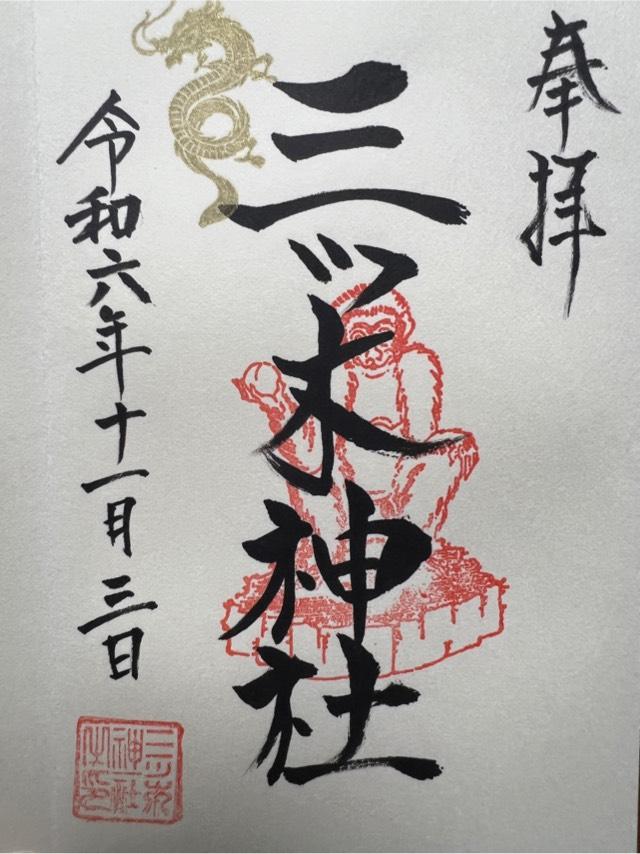 奉拝
三ツ木神社
令和六年十一月三日
三木
神社
之印